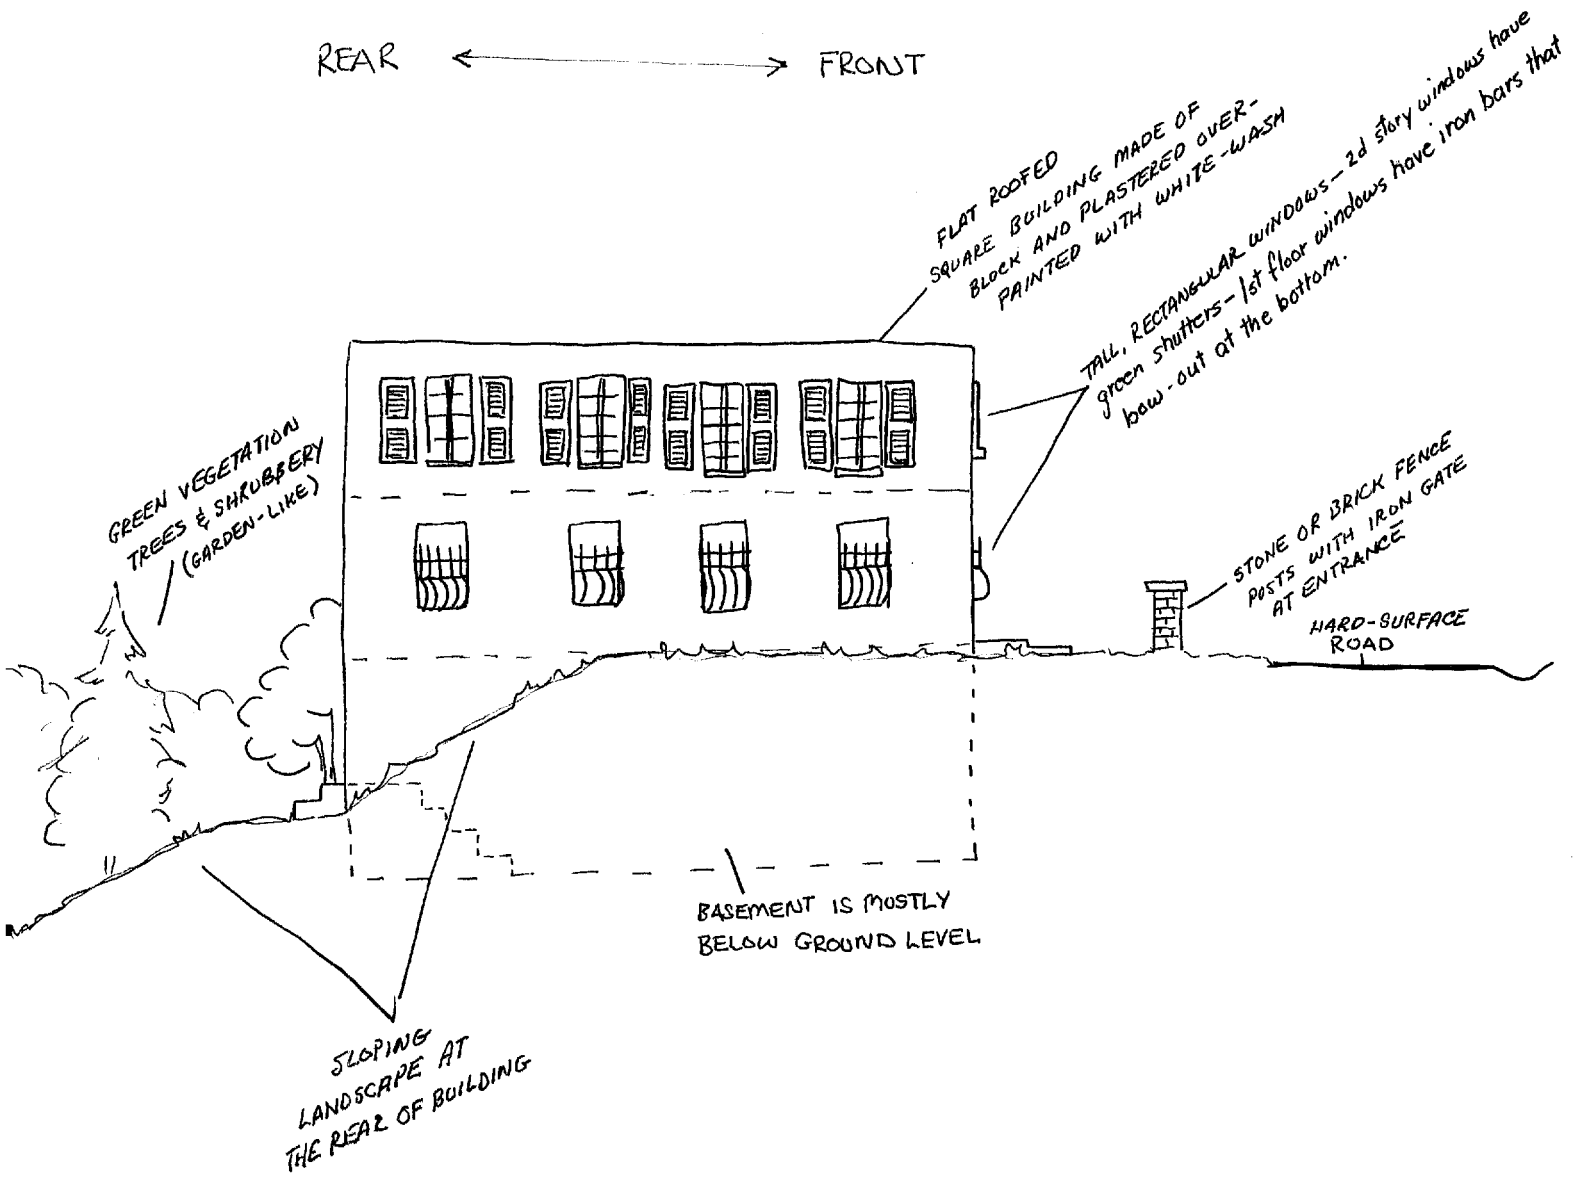 REAR FRONT
FLAT ROOFED
SQUARE BUILDING MADE OF
BLOCK AND PLASTERED OVER-
PAINTED WITH WHITE-WASH
TALL, RECTANGULAR WINDOWS- 2d story windows have
green shutters- 1st floor windows have iron bars that
bow-out at the bottom.
GREEN VEGETATION
TREES & SHRUBBERY
(GARDEN-LIKE)
STONE OR BRICK FENCE
POSTS WITH IRON GATE
AT ENTRANCE
HARD-SURFACE
ROAD
BASEMENT IS MOSTLY
BELOW GROUND LEVEL
SLOPING
LANDSCAPE AT
THE REAR OF BUILDING